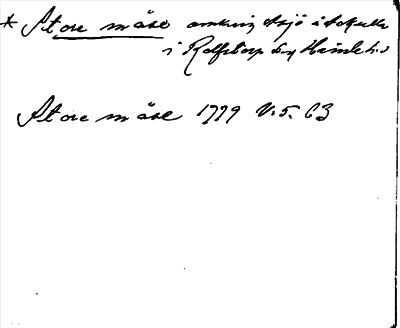 * Store måse omkring sjö i
i Rolfstorp sn Himle hd
Store måse 1799 V. 5. 63